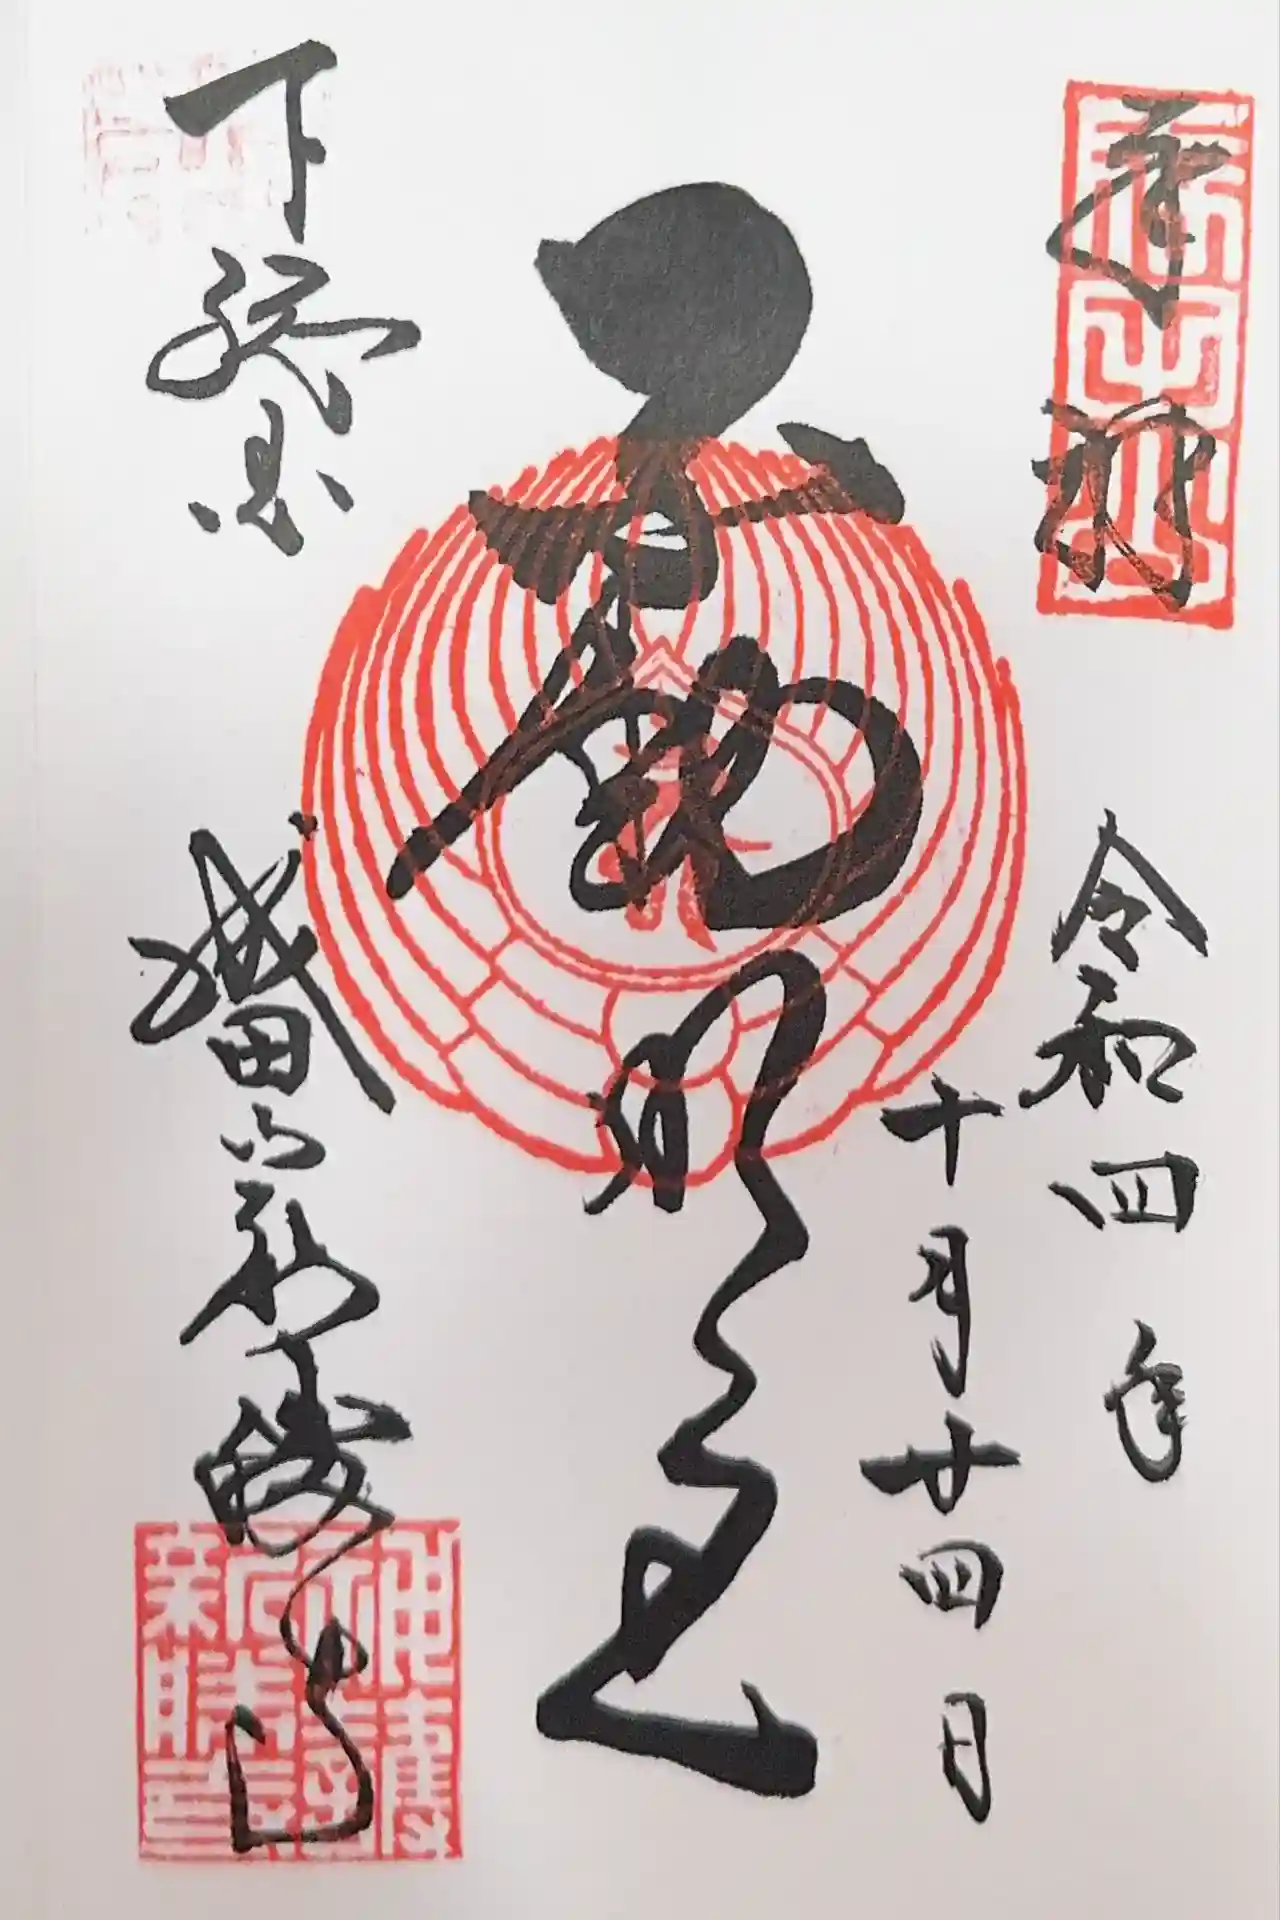 奉拝
令和四年
十月廿四日
不動明王
下総
成田山新勝寺